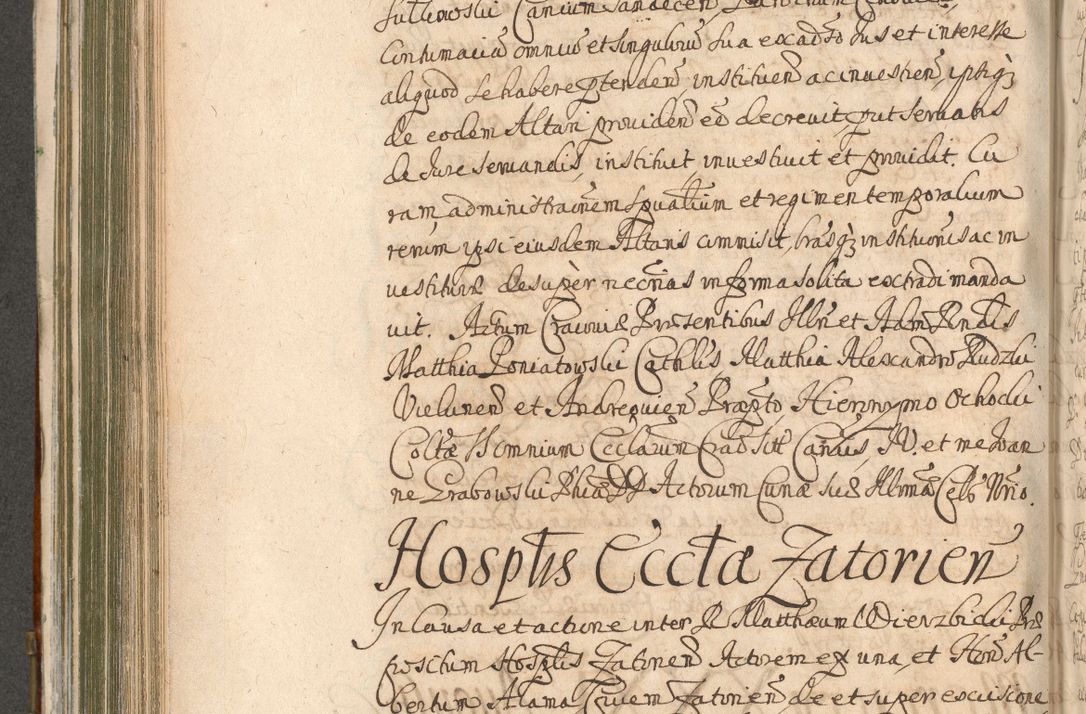 Contumacia omniũ et singuloru sua ex adto Jus et interesse
aliquod se habere ptenden, instituen ac investien, iptiq
de eodem Altari providen eë decrevit, put servatis
de Jure servandis, instituit, investivit et providit. Cu
ram, administraõnem spualium et regimen temporalium
rerum ipsi eiusdem Altaris commisit, brasq institutionis ac in
vestitur desupèr necrias in forma solita extradi manda
vit. Actum Cracoviæ Præsentibus Illri et Adm Rndis
Matthia Poniatowski Cathlis, Matthia Alexandro Rudzki
Vielunen et Andreovien Præpto Hieronymo Ochocki
Coltæ SS omnium Ecclarum Crac Cancis, N. et me Joan
ne Grabowski Actorum Curiæ Suæ Illmæ Cels Nrio.
Hosptis Ecctæ Zatorien
In causa et actione inter R Matthæum Wierzbicki Præ
positum Hosptis Zatorien Actorem ex una, et Hon Al-
bertum Alama Civem Zatorien de et super excisione